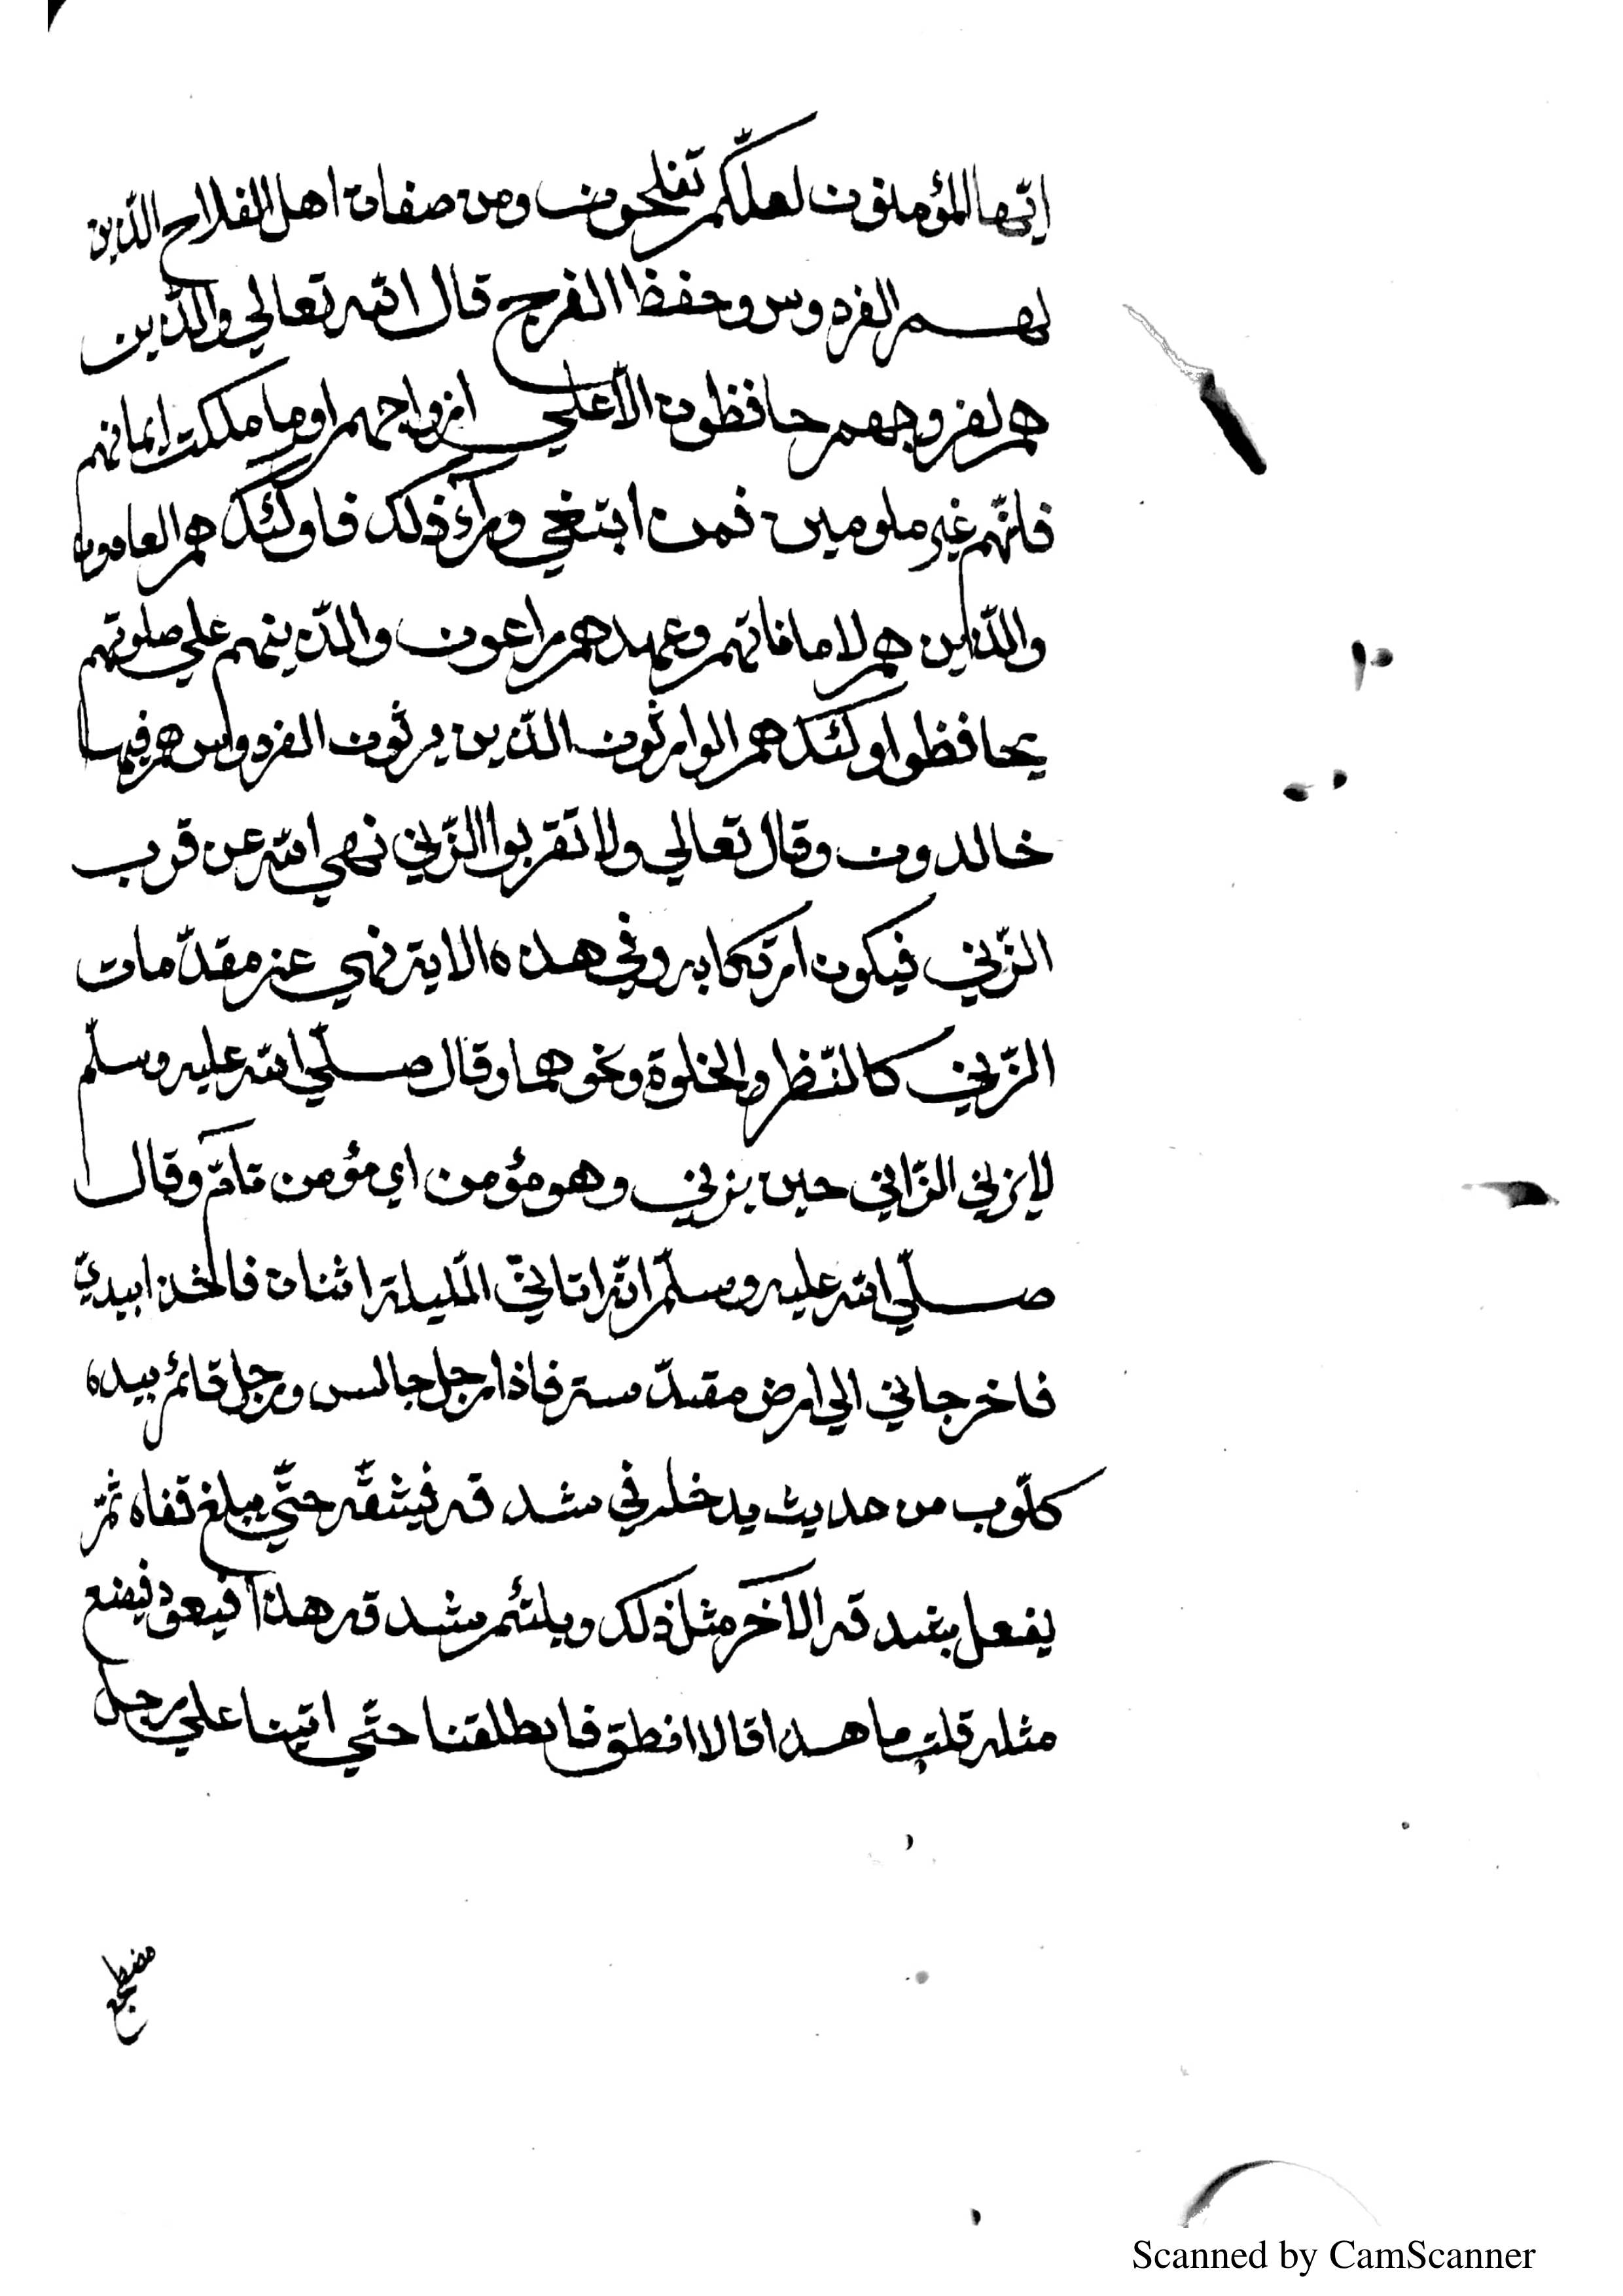 ايّها المؤمنون لعلّكم تفلحون ومن صفات اهل الفلاح الّذين
لهم الفردوس وحفظ الفرج قال الله تعالي والّذين
هم لفروجهم حافظون الّا علي ازواجهم او ما ملكت ايمانهم
فانّهم غير ملومين فمن ابتغي ورآء ذلك فاولئك هم العادون
والّذين هم لاماناتهم وعهدهم راعون والّذينهم علي صلوتهم
يحافظوا اولئك هم الوارثون الّذين يرثون الفردوس هم فيها
خالدون وقال تعالي ولا تقربوا الزّني نهي الله عن قرب
الزّني فيكون ارتكابه وفي هذه الاية نهي عنه مقدّمات
الزّني كالنّظر والخلوة ونحوهما وقال صلّي الله عليه وسلّم
لا يزني الزّاني حين يزني وهو مؤمن اي مؤمن تامّ وقال
صلّي الله عليه وسلّم انّه اتاني اللّيلة اثنان فاخذا بيديّ
فاخرجاني الي ارض مقدّسة فاذا رجل جالس ورجل قائم بيده
كلّوب من حديث يدخله في شدقه فيشقّه حتّي يبلغ قفاه ثمّ
يفعل بشدقه الاخر مثل ذلك ويلتئم شدقه هذا فيعود فيضع
مثله قلت ما هذا قالا انطق فانطلقنا حتّي اتينا علي رجل
مضطجع
Scanned by CamScanner